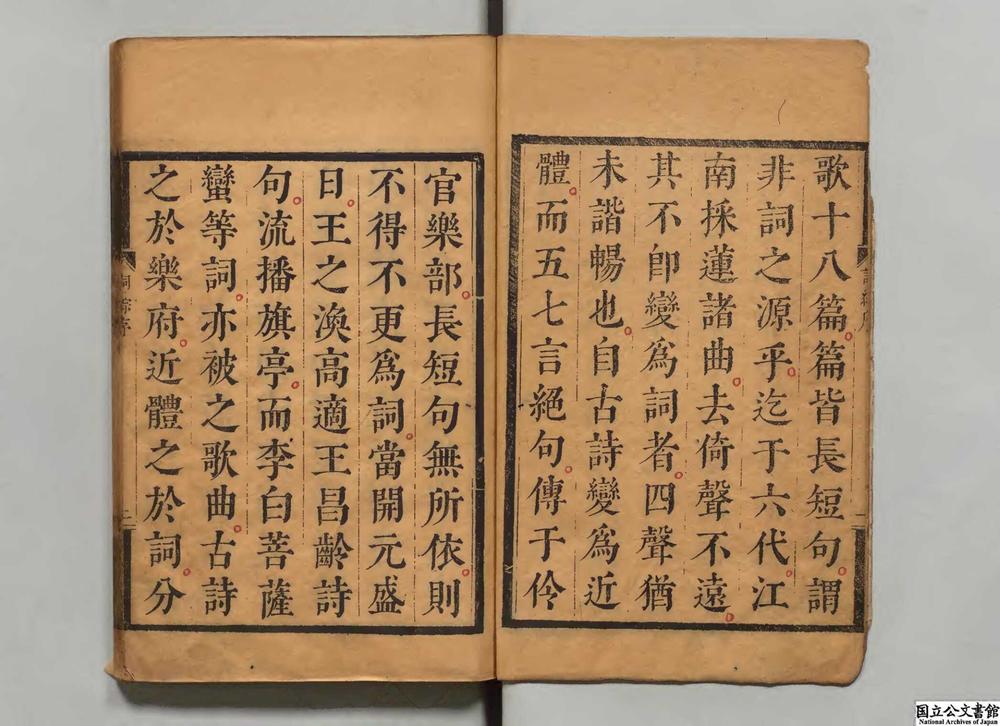 歌十八篇。篇皆長短句。謂
非詞之源乎。迄于六代。江
南採蓮諸曲。去倚聲不遠。
其不卽變爲詞者。四聲猶
未諧暢也。自古詩變爲近
體。而五七言絕句。傳于伶
官樂部。長短句無所依。則
不得不更爲詞。當開元盛
日。王之渙高適王昌齡詩
句。流播旗亭。而李白菩薩
蠻等詞。亦被之歌曲。古詩
之於樂府。近體之於詞。分
詞綜序
二
国立公文書館
National Archives of Japan